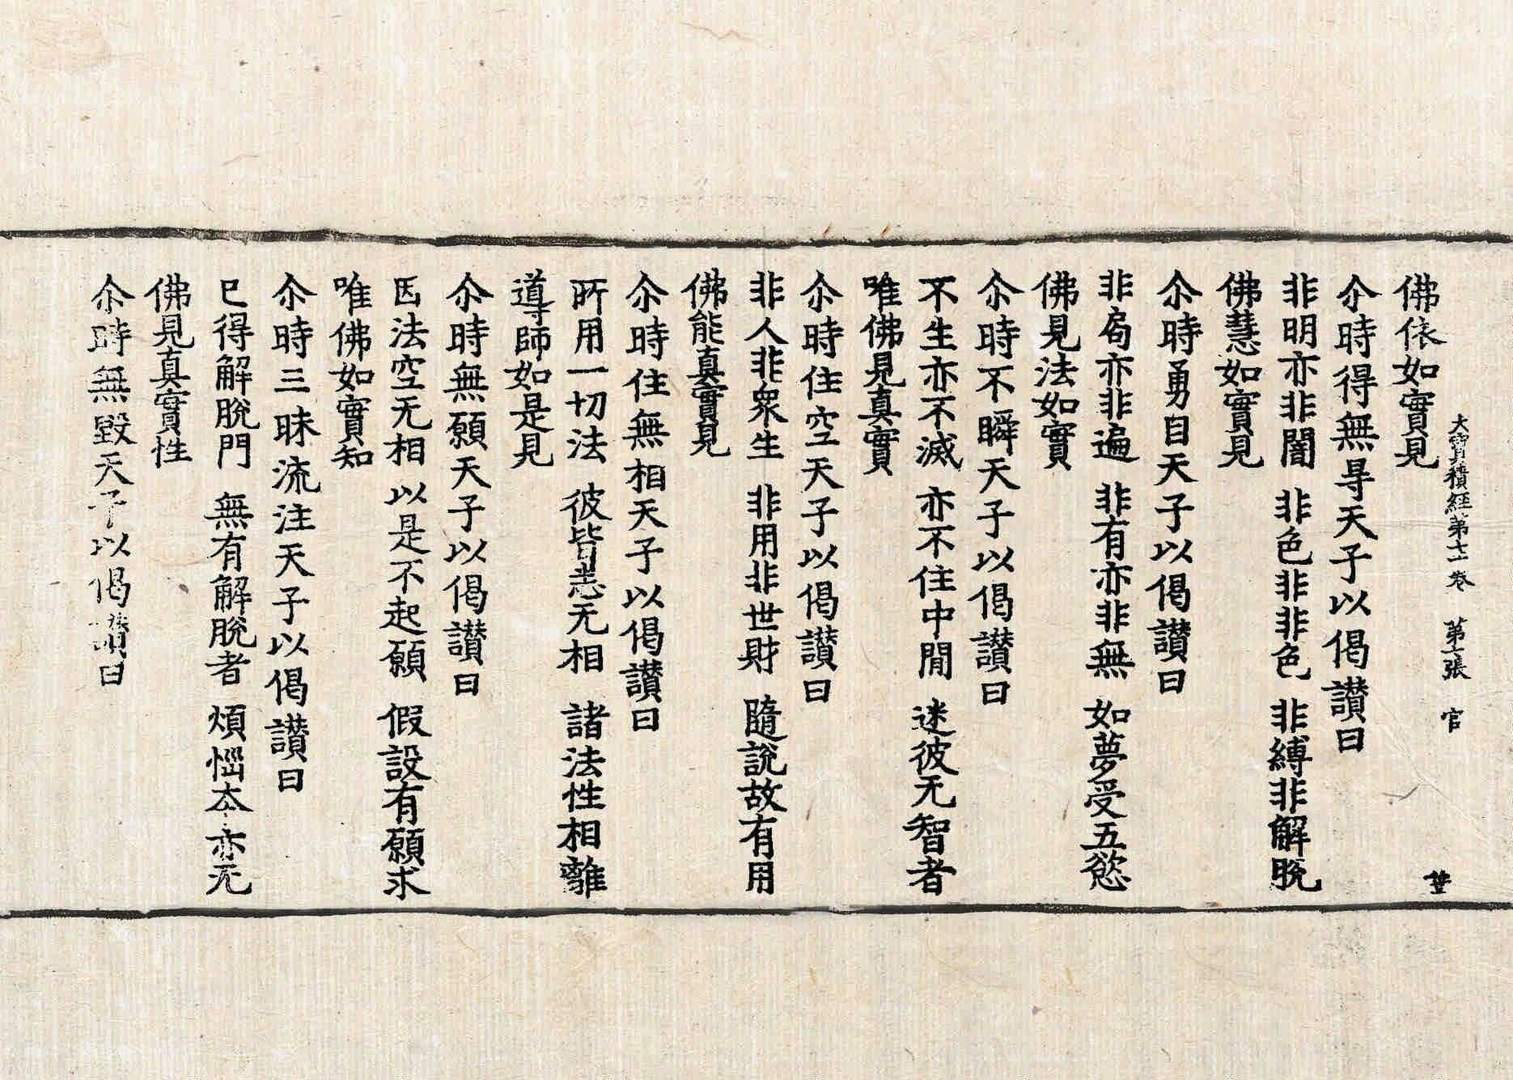 大寶積經第七十一卷 第十一張 官
佛依如實見
尒時得無㝵天子以偈讃曰
非明亦非闇 非色非非色 非縛非解脫
佛慧如實見
尒時勇目天子以偈讃曰
非局亦非遍 非有亦非無 如夢受五慾
佛見法如實
尒時不瞬天子以偈讃曰
不生亦不滅 亦不住中閒 迷彼无智者
唯佛見真實
尒時住空天子以偈讃曰
非人非衆生 非用非世財 隨說故有用
佛能真實見
尒時住無相天子以偈讃曰
所用一切法 彼皆悉无相 諸法性相離
導師如是見
尒時無願天子以偈讃曰
因法空无相 以是不起願 假設有願求
唯佛如實知
尒時三昧流注天子以偈讃曰
已得解脫門 無有解脫者 煩惱本亦无
佛見真實性
尒時無毀天子以偈讃曰